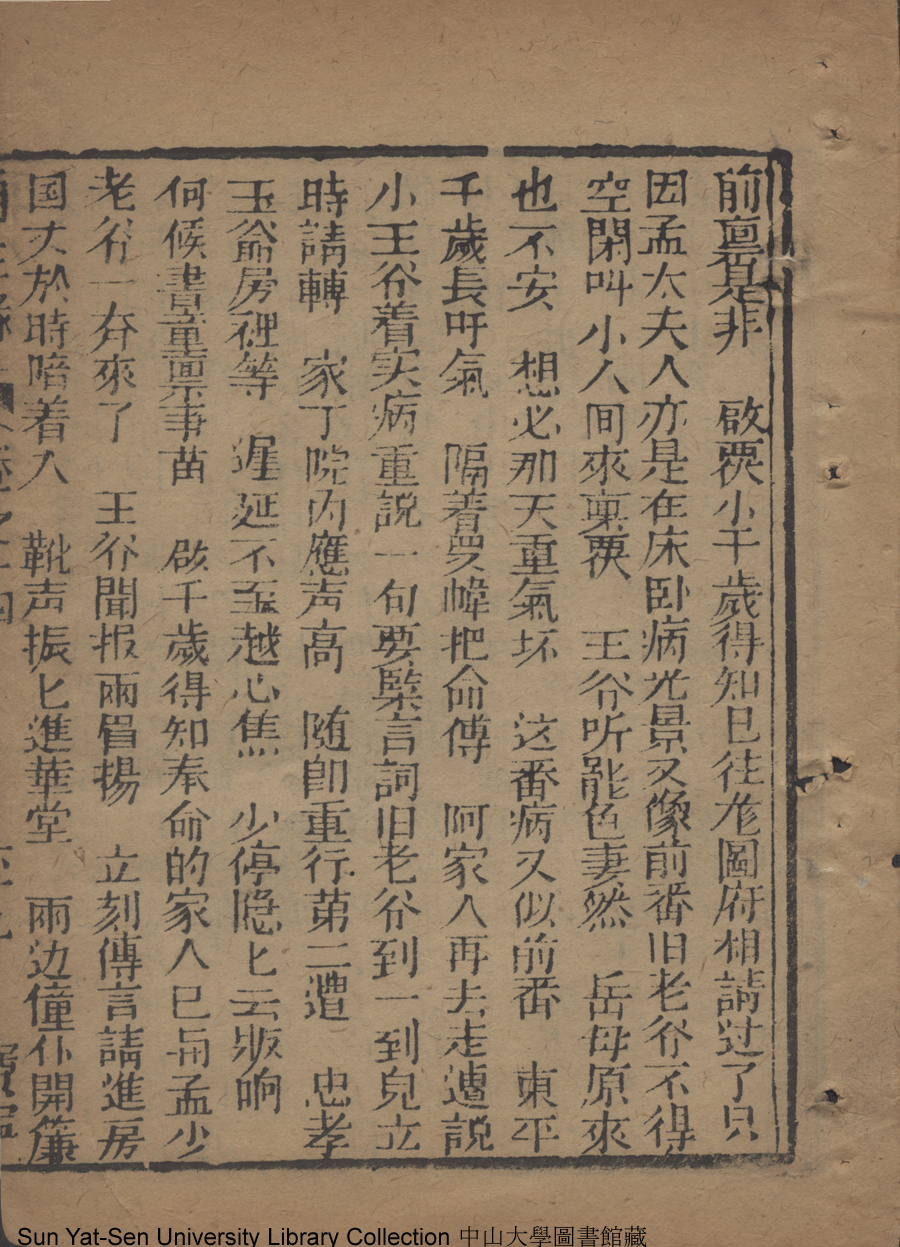 前禀是非　啟禀小千歲得知已往龙圖府相請过了只
因孟太夫人亦是在床卧病光景又像前番旧老爷不得
空閑叫小人间來禀覆　王爷听罷色妻然　岳母原來
也不安　想必那天重氣坏　这番病又似前番　東平
千歲長吁氣　隔着罗幃把命傳　阿家人再去走遭説
小王爷着实病重説一句要緊言詞旧老爷到一到兒立
時請轉　家丁院内應声高　随即重行第二遭　忠孝
玉爺房裡等　遲延不至越心焦　少停隐匕云板响
伺候書童禀事苗　啟千歲得知奉命的家人已同孟少
老爷一夯來了　王爷聞报兩眉揚　立刻傳言請進房
国丈於時暗着人　靴声振匕進華堂　兩边僮仆開簾
卷之十四
Sun Yat-Sen University Library Collection 中山大學圖書館藏